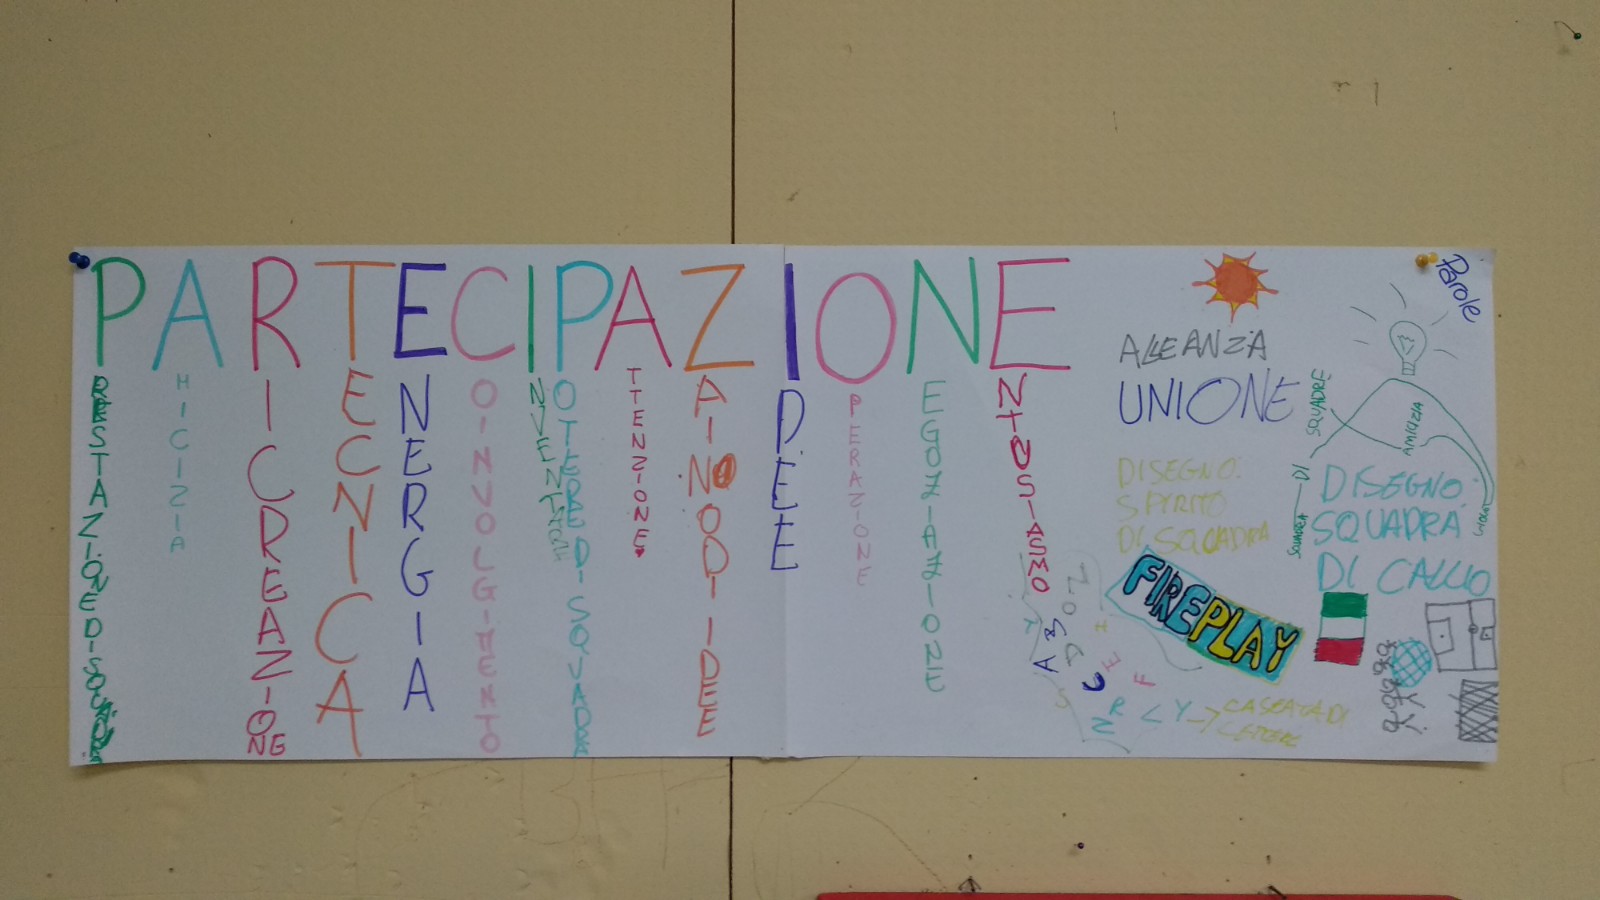 PARTECIPAZIONE
PRESTAZIONE DI SQUADRA
AMICIZIA
RICREAZIONE
TECNICA
ENERGIA
COINVOLGIMENTO
INVENTARE
POTERE DI SQUADRA
ATTENZIONE
ZAINO DI IDEE
IDEE
OPERAZIONE
NEGOZIAZIONE
ENTUSIASMO
Parole
ALLEANZA
UNIONE
SQUADRA DI SQUADRE
AMICIZIA
DISEGNO:
SPIRITO
DI SQUADRA
DISEGNO:
SQUADRA
DI CALCIO
FIREPLAY
CASCATA DI
LETTERE